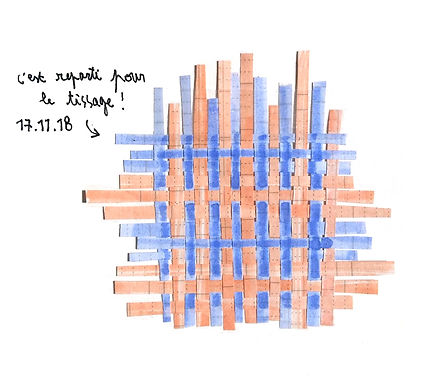 c'est reparti pour
le tissage !
17.11.18